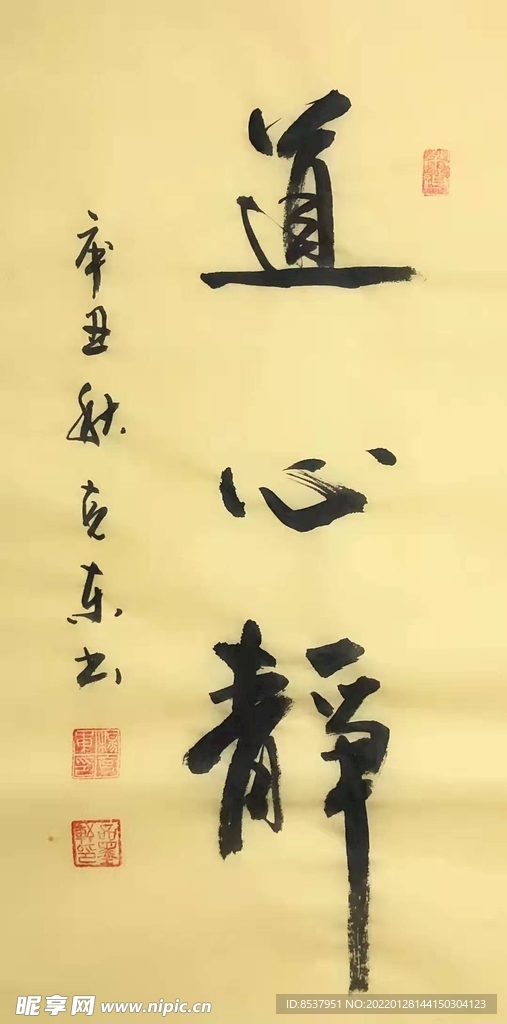 道心靜
辛丑秋克东书
昵享网 www.nipic.cn
ID:8537951 NO:20220128144150304123